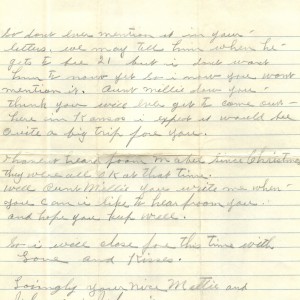 So dont ever mention it in your
letters. we may tell him when he
gets to bee 21 but i dont want
him to now yet so i now you wont
mention it. Aunt Mellie does you
think you will ever get to come out
here in Kansas i expect it would bee
Quite a big trip fore you.
I have n hear from Mabel since Christmas
they were all O.K at that time.
well Aunt Mellie you write me when
you can is life to hear from you.
and hope you keep well.
So i well close for this time with
Love and Kisses.
Lovingly your Niece Mettie and